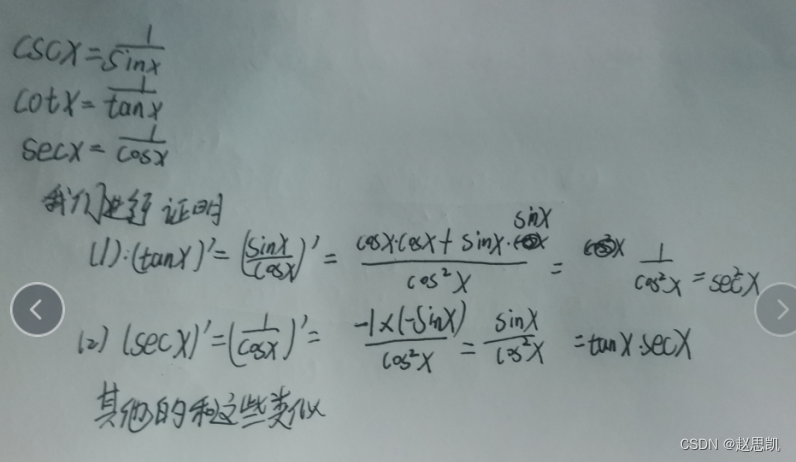 cscx = 1/sinx
cotx = 1/tanx
secx = 1/cosx
我们进行证明
(1):(tanx)′ = (sinx/cosx)′ = (cosx·cosx + sinx·sinx)/cos²x = 1/cos²x = sec²x
(2) (secx)′ = (1/cosx)′ = (-1×(-sinx))/cos²x = sinx/cos²x = tanx·secx
其他的和这些类似
CSDN @赵思凯